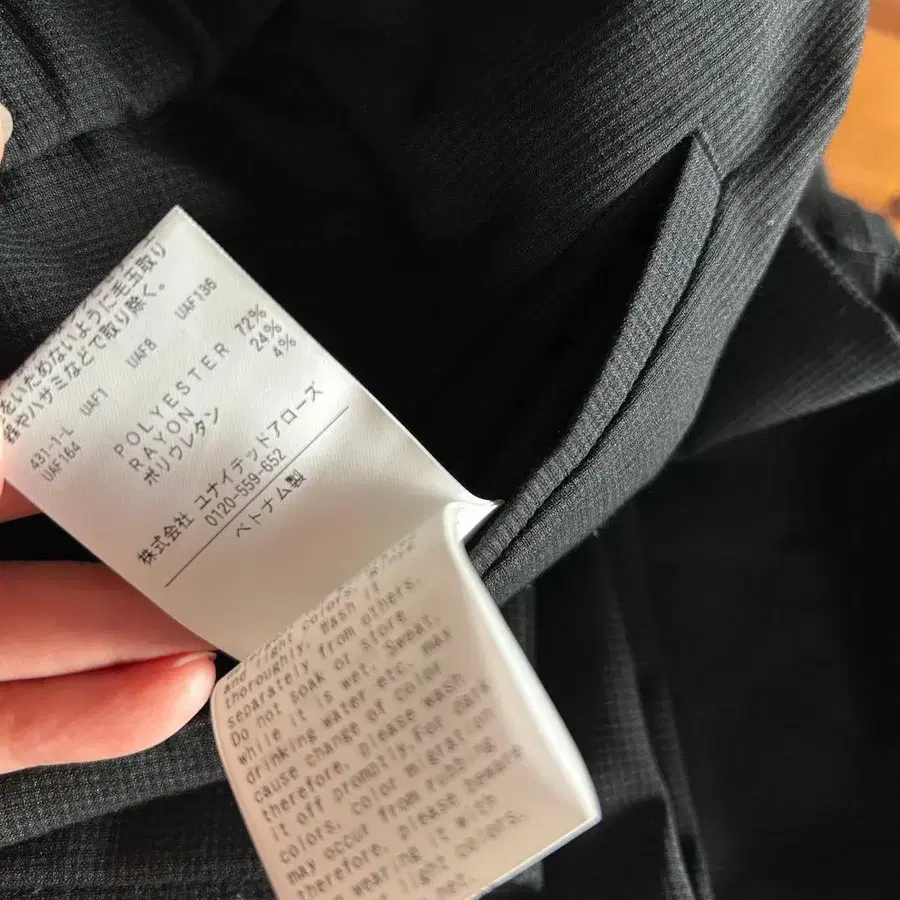 をいためないように毛玉取り
器やハサミなどで取り除く。
431-1-L UAF1 UAF8 UAF136
UAF164
POLYESTER 72%
RAYON 24%
ポリウレタン 4%
株式会社 ユナイテッドアローズ
0120-559-652
ベトナム製
and light colors.
thoroughly. Wash it
separately from others.
Do not soak or store
while it is wet. Sweat,
drinking water etc. may
cause change of color
therefore, please wash
it off promptly.For dark
colors, color migration
may occur from rubbing
therefore, please beware
wearing it with
light colors.